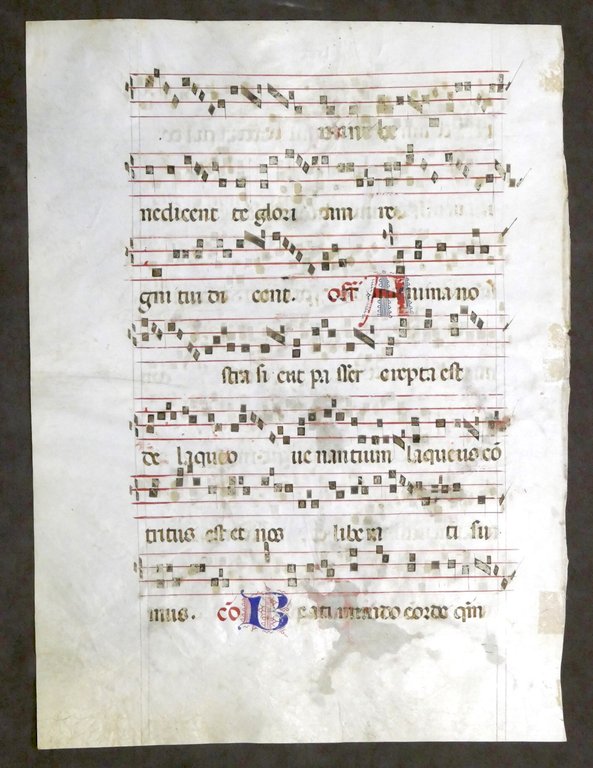 nedicent te glori am re
gni tui di cent. off Anima no
stra si cut pa sser erepta est
de laqueo ue nantium laqueus cō
tritus est et nos libera ti su
mus. cō Beati mundo corde qm̄